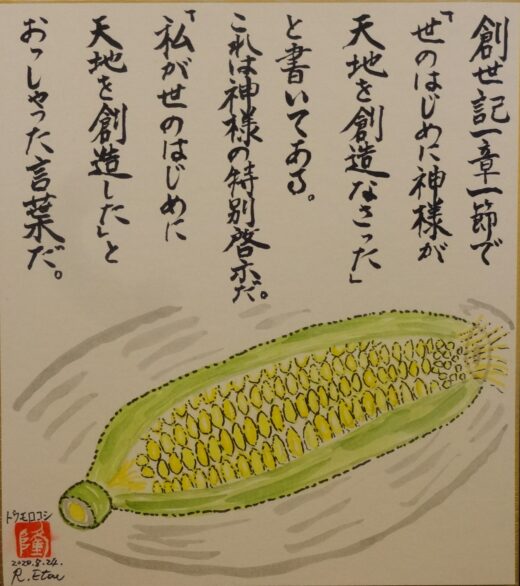 創世記一章一節で
「世のはじめに神様が
天地を創造なさった」
と書いてある。
これは神様の特別啓示だ。
「私が世のはじめに
天地を創造した」と
おっしゃった言葉だ。
トウモロコシ
隆
2020.8.24.
R. Etou